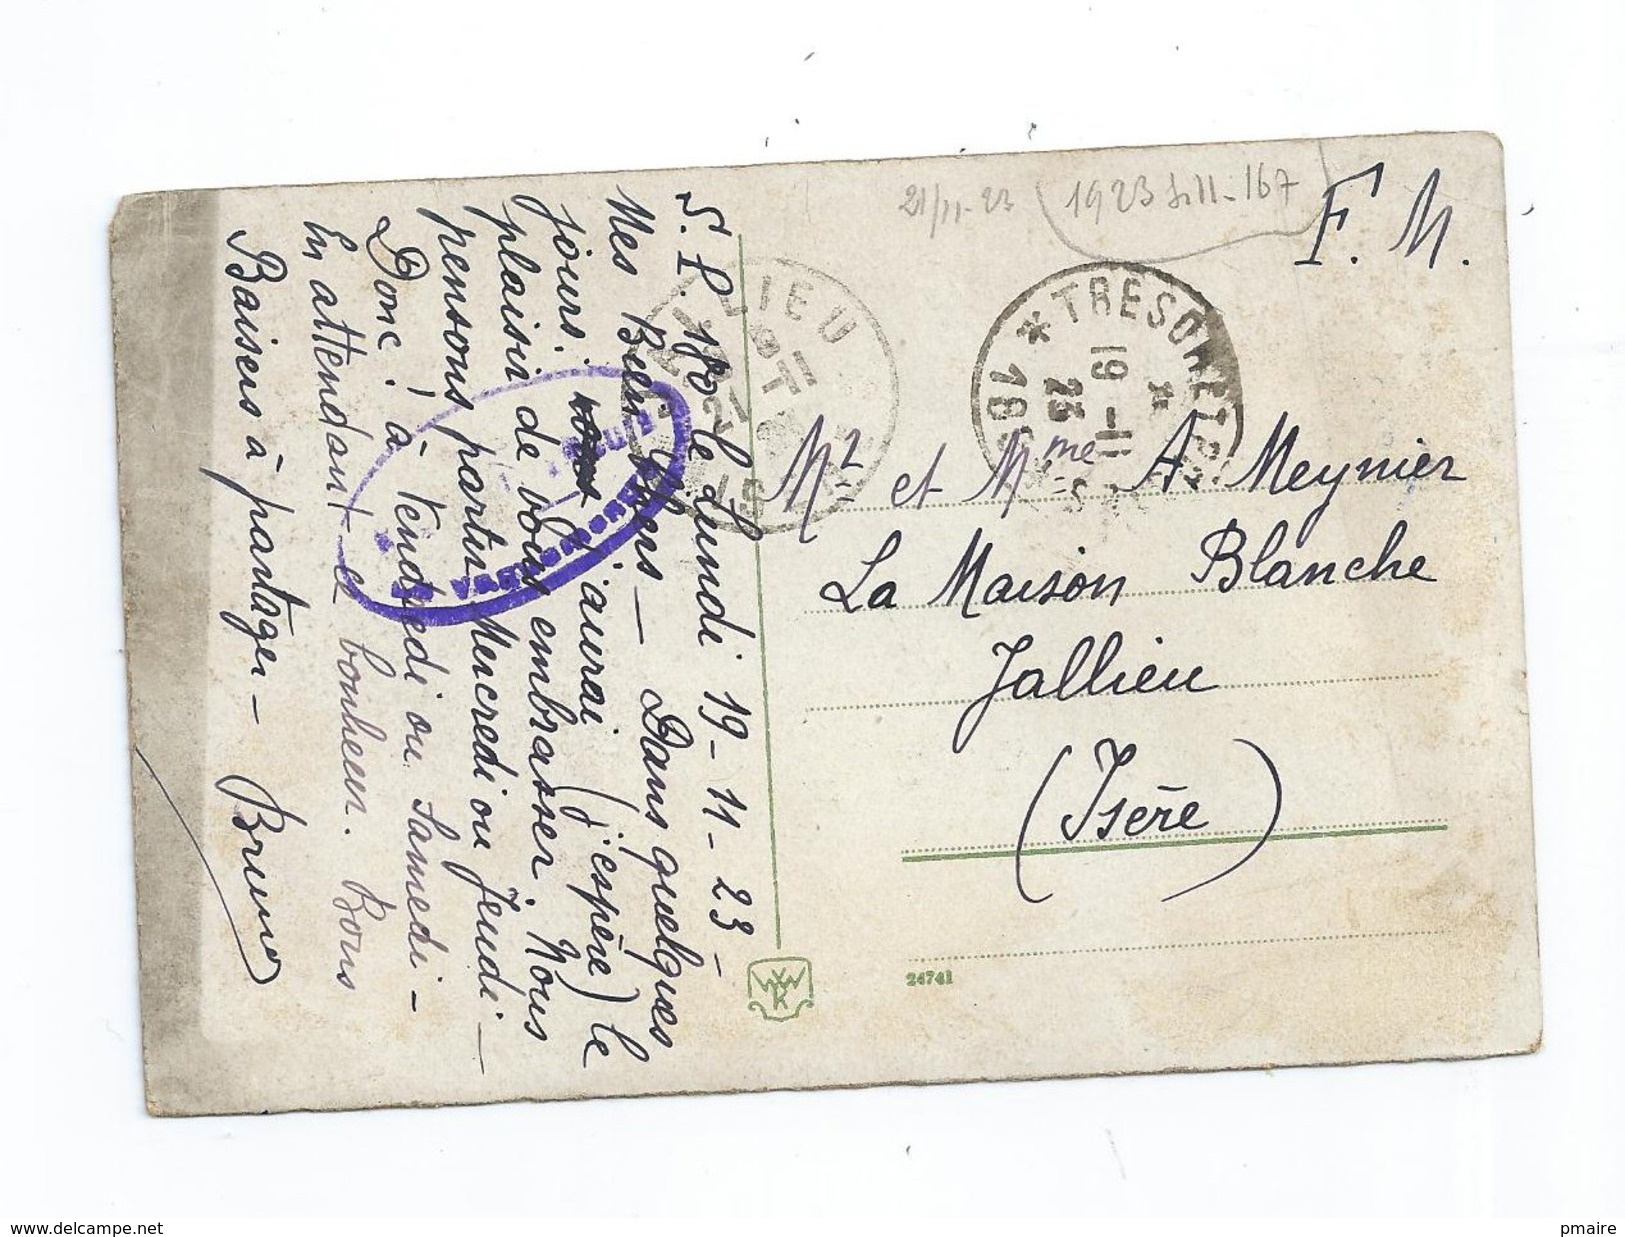 21/11-23
1923
167
F. M.
S.P. 180 le Lundi 19-11-23-
Mes Bien Chers - Dans quelques
jours. vous j'aurai (j'espère) le
plaisir de vous embrasser. Nous
pensons partir Mercredi ou Jeudi -
Donc! à Vendredi ou Samedi -
En attendant ce bonheur. Bons
Baisers à partager - Bruno
JALLIEU
TRESOR ET POSTES
19-11
23
* 181
Mr et Mme A. Meynier
La Maison Blanche
Jallieu
(Isère)
24741
www.delcampe.net
pmaire